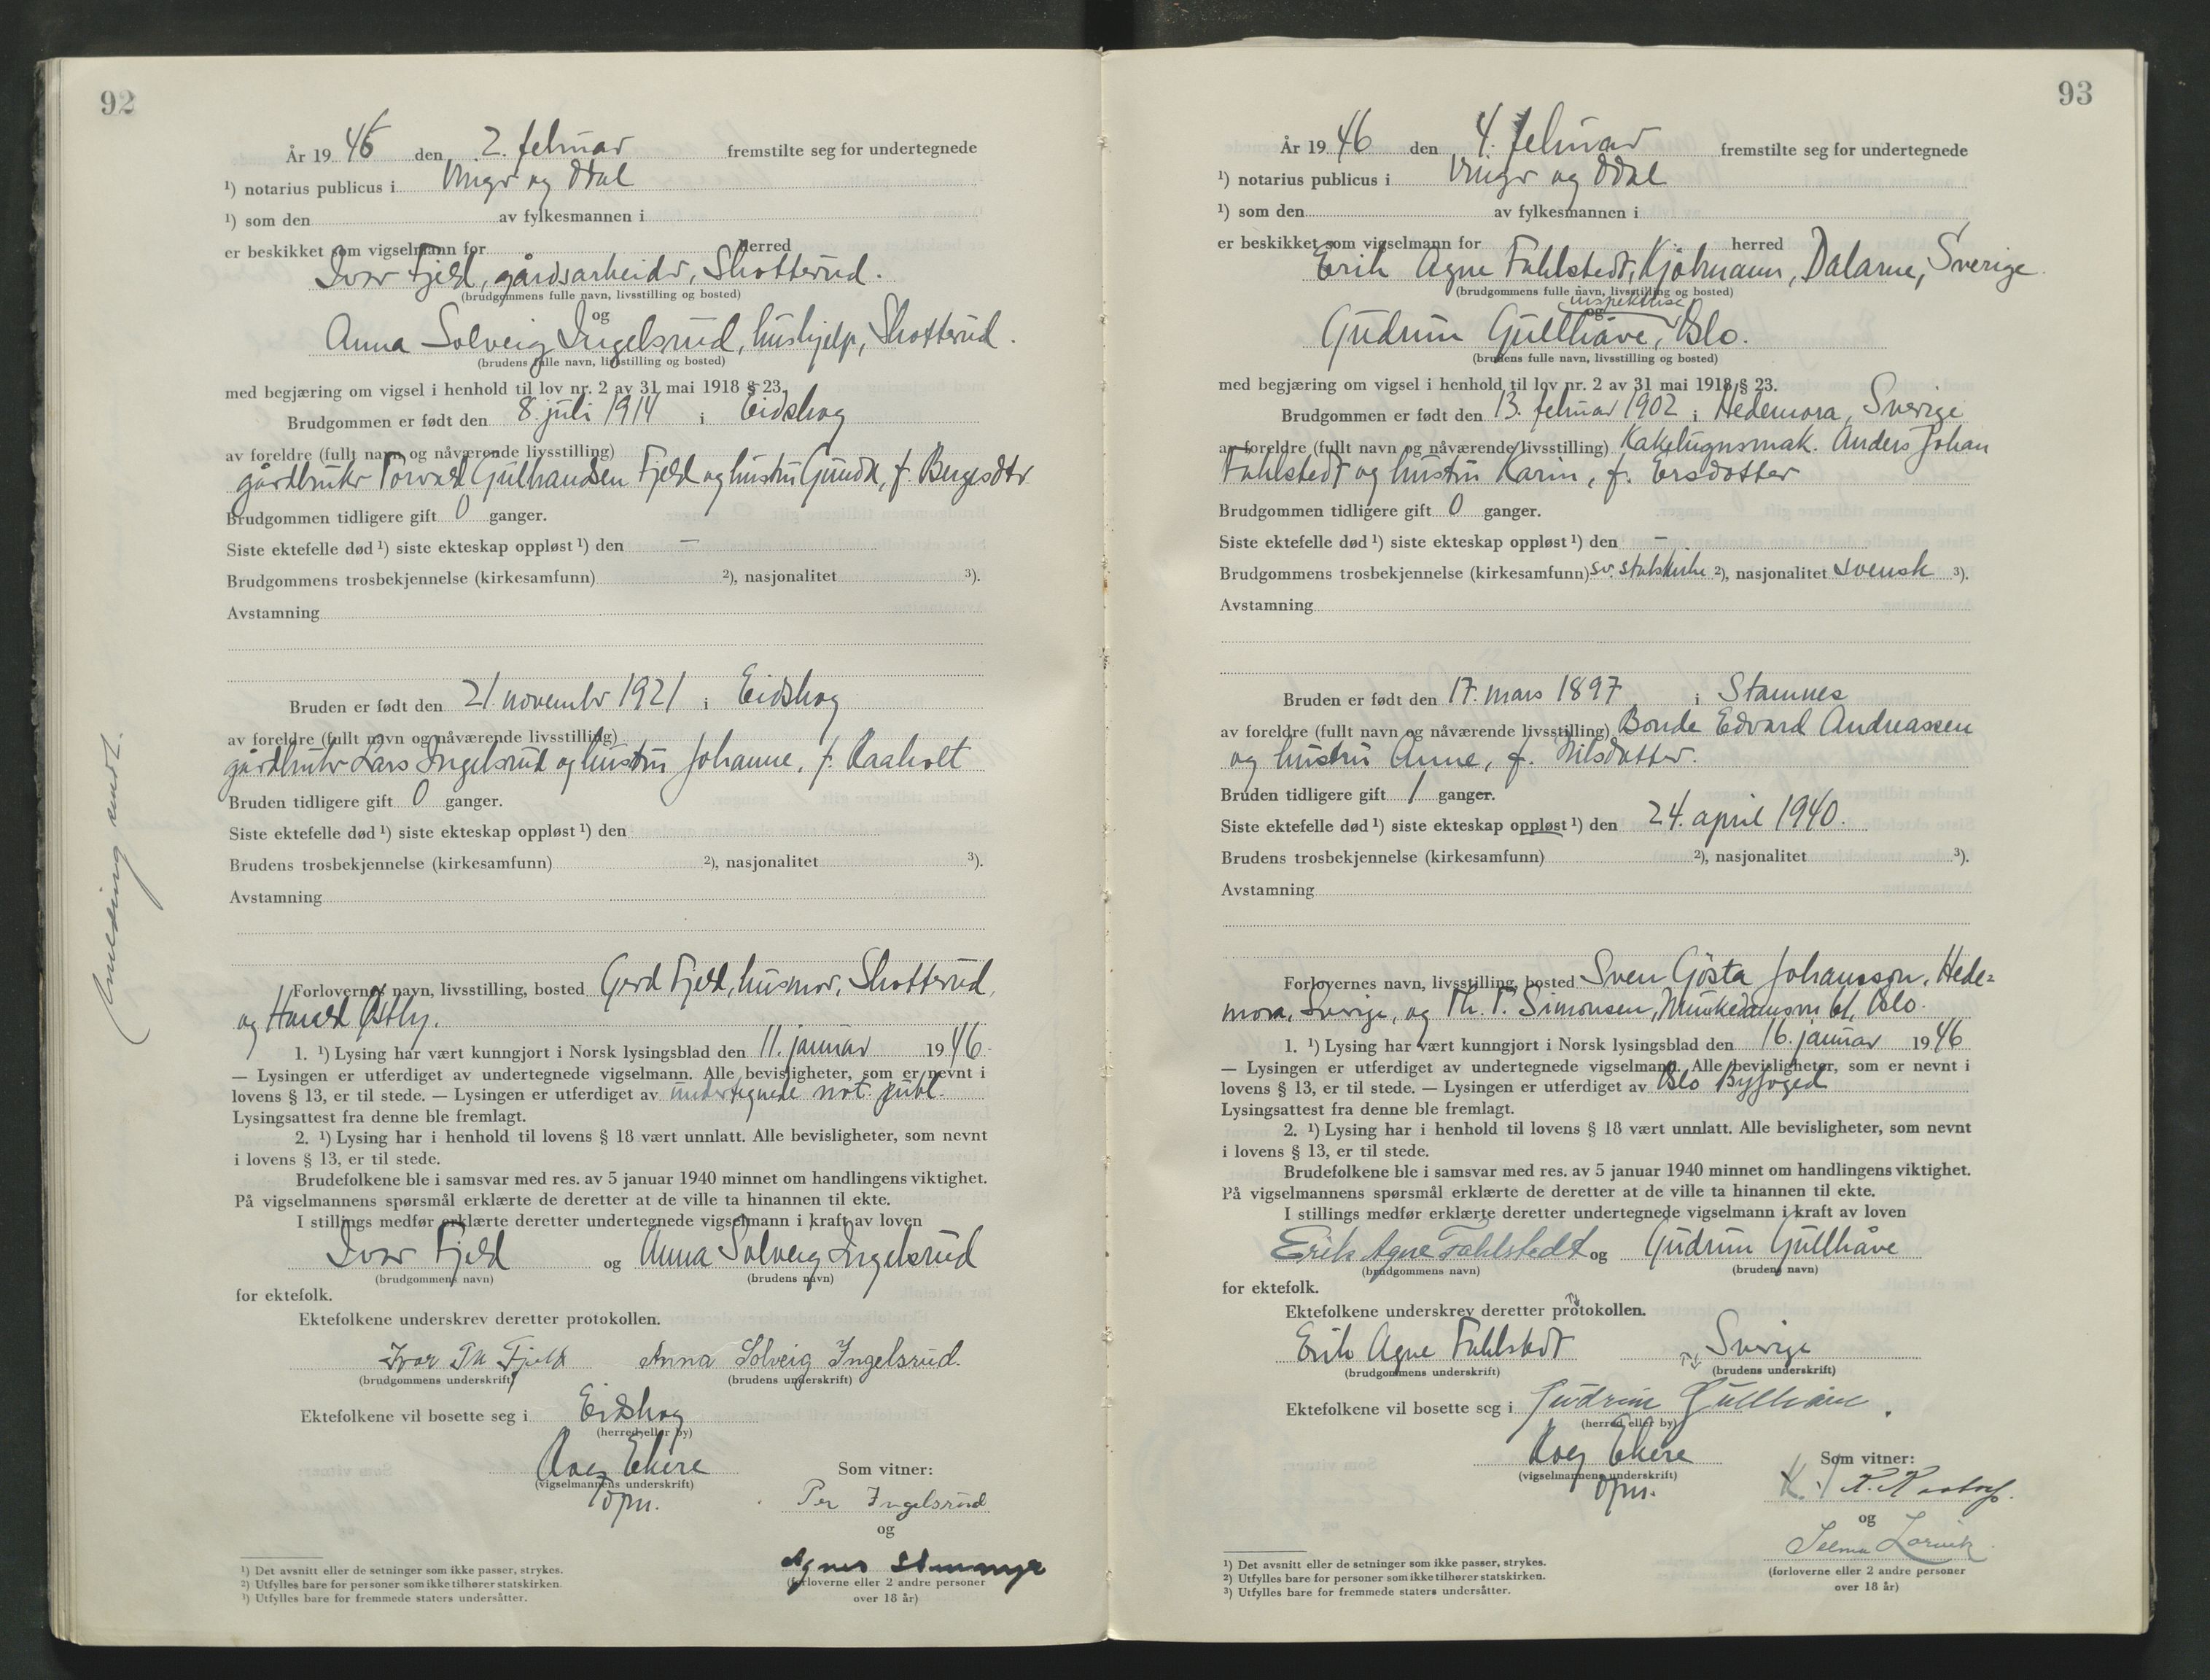 92
År 19 46 den 2. februar fremstilte seg for undertegnede
¹) notarius publicus i Vinger og Odal
¹) som den av fylkesmannen i
er beskikket som vigselmann for herred
Ivar Fjeld, gårdsarbeider, Skotterud.
(brudgommens fulle navn, livsstilling og bosted)
og
Anna Solveig Ingelsrud, hushjelp, Skotterud.
(brudens fulle navn, livsstilling og bosted)
med begjæring om vigsel i henhold til lov nr. 2 av 31 mai 1918 § 23.
Brudgommen er født den 8. juli 1914 i Eidskog
av foreldre (fullt navn og nåværende livsstilling)
gårdbruker Torvald Gulbrandsen Fjeld og hustru Gunda, f. Bergesdtr
Brudgommen tidligere gift 0 ganger.
Siste ektefelle død ¹) siste ekteskap oppløst ¹) den —
Brudgommens trosbekjennelse (kirkesamfunn) ²), nasjonalitet ³).
Avstamning
Bruden er født den 21. november 1921 i Eidskog
av foreldre (fullt navn og nåværende livsstilling)
gårdbruker Lars Ingelsrud og hustru Johanne, f. Raaholt
Bruden tidligere gift 0 ganger.
Siste ektefelle død ¹) siste ekteskap oppløst ¹) den
Brudens trosbekjennelse (kirkesamfunn) ²), nasjonalitet ³).
Avstamning
Forlovernes navn, livsstilling, bosted Gerd Fjeld, husmor, Skotterud,
og Harald Østby.
1. ¹) Lysing har vært kunngjort i Norsk lysingsblad den 11. januar 19 46.
— Lysingen er utferdiget av undertegnede vigselmann. Alle bevisligheter, som er nevnt i
lovens § 13, er til stede. — Lysingen er utferdiget av undertegnede not. publ.
Lysingsattest fra denne ble fremlagt.
2. ¹) Lysing har i henhold til lovens § 18 vært unnlatt. Alle bevisligheter, som nevnt
i lovens § 13, er til stede.
Brudefolkene ble i samsvar med res. av 5 januar 1940 minnet om handlingens viktighet.
På vigselmannens spørsmål erklærte de deretter at de ville ta hinannen til ekte.
I stillings medfør erklærte deretter undertegnede vigselmann i kraft av loven
Ivar Fjeld og Anna Solveig Ingelsrud
(brudgommens navn) (brudens navn)
for ektefolk.
Ektefolkene underskrev deretter protokollen.
Ivar Th Fjeld Anna Solveig Ingelsrud.
(brudgommens underskrift) (brudens underskrift)
Ektefolkene vil bosette seg i Eidskog
(herred eller by)
Ekere
(vigselmannens underskrift)
Som vitner:
Per Ingelsrud
og
Agnes
(forloverne eller 2 andre personer
over 18 år)
¹) Det avsnitt eller de setninger som ikke passer, strykes.
²) Utfylles bare for personer som ikke tilhører statskirken.
³) Utfylles bare for fremmede staters undersåtter.
melding sendt.
93
År 19 46 den 4. februar fremstilte seg for undertegnede
¹) notarius publicus i Vinger og Odal
¹) som den av fylkesmannen i
er beskikket som vigselmann for herred
Erik Agne Fahlstedt, Kjøbmann, Dalarne, Sverige.
(brudgommens fulle navn, livsstilling og bosted)
inspektrise
og
Gudrun Gullhåve, Oslo.
(brudens fulle navn, livsstilling og bosted)
med begjæring om vigsel i henhold til lov nr. 2 av 31 mai 1918 § 23.
Brudgommen er født den 13. februar 1902 i Hedemora, Sverige
av foreldre (fullt navn og nåværende livsstilling) Kakelugnsmak. Anders Johan
Fahlstedt og hustru Karin, f. Ersdotter
Brudgommen tidligere gift 0 ganger.
Siste ektefelle død ¹) siste ekteskap oppløst ¹) den —
Brudgommens trosbekjennelse (kirkesamfunn) sv. statskirke ²), nasjonalitet svensk ³).
Avstamning
Bruden er født den 17. mars 1897 i Stamnes
av foreldre (fullt navn og nåværende livsstilling) Bonde Edvard Andreassen
og hustru Anne, f. Nilsdatter.
Bruden tidligere gift 1 ganger.
Siste ektefelle død ¹) siste ekteskap oppløst ¹) den 24. april 1940.
Brudens trosbekjennelse (kirkesamfunn) ²), nasjonalitet ³).
Avstamning
Forlovernes navn, livsstilling, bosted Sven Gösta Johansson, Hede=
mora, Sverige, og Th. T. Simonsen, Munkedamsvn 61, Oslo.
1. ¹) Lysing har vært kunngjort i Norsk lysingsblad den 16. januar 19 46
— Lysingen er utferdiget av undertegnede vigselmann. Alle bevisligheter, som er nevnt i
lovens § 13, er til stede. — Lysingen er utferdiget av Oslo Byfoged
Lysingsattest fra denne ble fremlagt.
2. ¹) Lysing har i henhold til lovens § 18 vært unnlatt. Alle bevisligheter, som nevnt
i lovens § 13, er til stede.
Brudefolkene ble i samsvar med res. av 5 januar 1940 minnet om handlingens viktighet.
På vigselmannens spørsmål erklærte de deretter at de ville ta hinannen til ekte.
I stillings medfør erklærte deretter undertegnede vigselmann i kraft av loven
Erik Agne Fahlstedt og Gudrun Gullhåve
(brudgommens navn) (brudens navn)
for ektefolk.
Ektefolkene underskrev deretter protokollen.
Erik Agne Fahlstedt Sverige
(brudgommens underskrift) (brudens underskrift)
Ektefolkene vil bosette seg i Gudrun Gullhåve.
(herred eller by)
Ekere
(vigselmannens underskrift)
Som vitner:
K.
og
Selma
(forloverne eller 2 andre personer
over 18 år)
¹) Det avsnitt eller de setninger som ikke passer, strykes.
²) Utfylles bare for personer som ikke tilhører statskirken.
³) Utfylles bare for fremmede staters undersåtter.